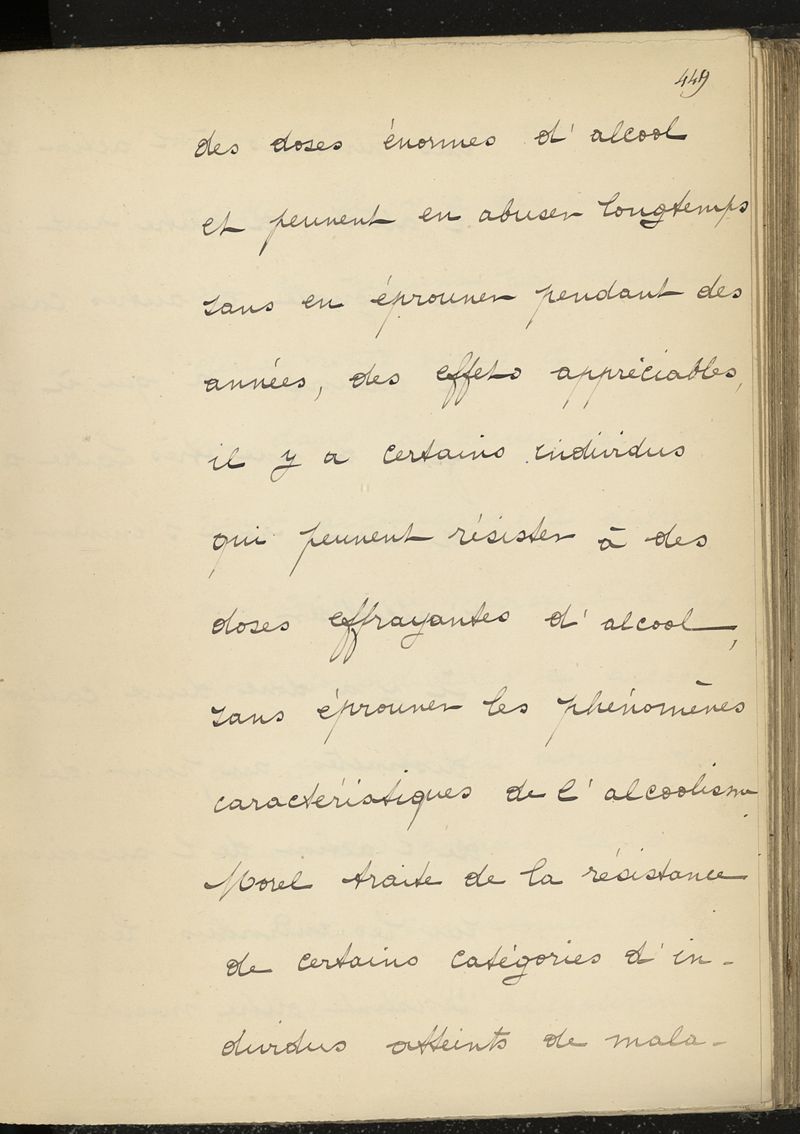 449
des doses énormes d'alcool
et peuvent en abuser longtemps
sans en éprouver pendant des
années, des effets appréciables,
il y a certains individus
qui peuvent résister à des
doses effrayantes d'alcool,
sans éprouver les phénomènes
caractéristiques de l'alcoolisme.
Morel traite de la résistance
de certains catégories d'in-
dividus atteints de mala-